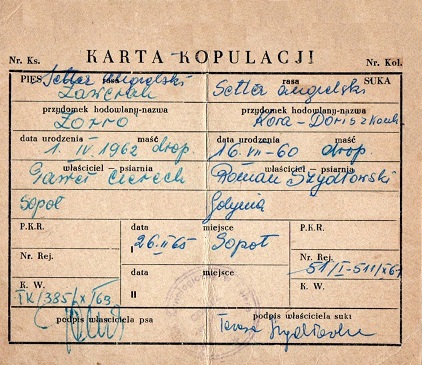 Nr. Ks. KARTA KOPULACJI Nr. Kol.
PIES Setter angielski rasa Setter angielski SUKA
przydomek hodowlany-nazwa przydomek hodowlany-nazwa
Zorro Kora -
data urodzenia maść data urodzenia maść
1. IV 1962 drop. 16 VII-60 drop.
właściciel - psiarnia właściciel - psiarnia
Paweł Roman Szydłowski
Sopot Gdynia
P.K.R. data miejsce P.K.R.
I 26.II 65 Sopot
Nr. Rej. data miejsce Nr. Rej.
K. W. II K. W.
IX/385/XI/63
podpis właściciela psa podpis właściciela suki
Teresa Szydłowska